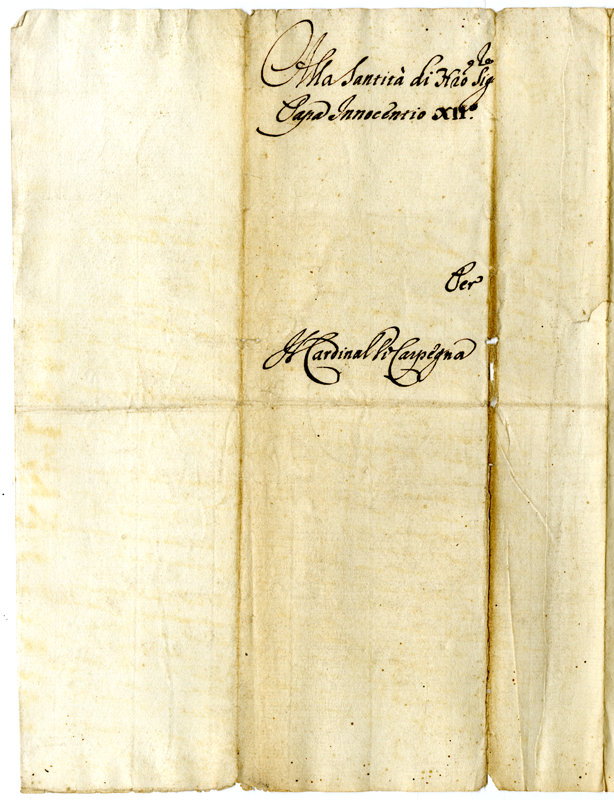 Alla Santità di Nrō Sig.re
Papa Innocentio XII.º
Per
Il Cardinal di Carpegna